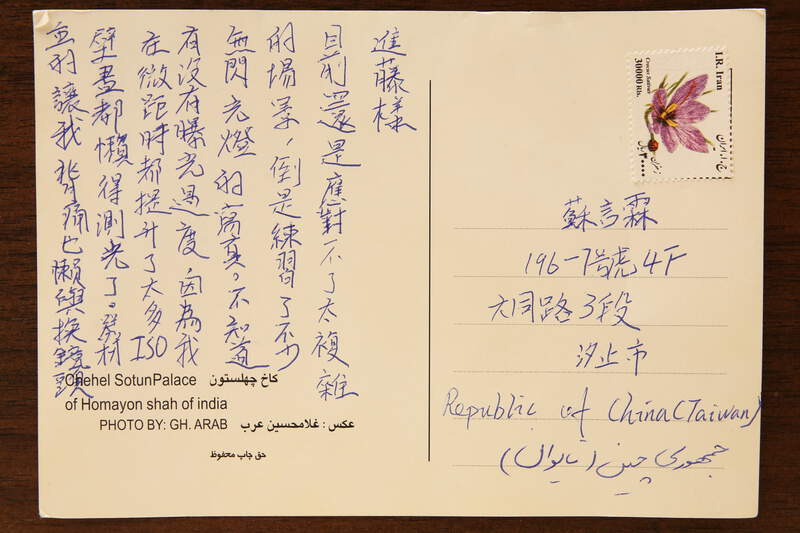 進藤様
目前還是應對不了太複雜
的場景，倒是練習了不少
無閃光燈的寫真。不知道
有沒有曝光過度，因為我
在微距時都提升了太多ISO
壁畫都懶得測光了。器材
並列讓我背痛也懶與換鏡頭
Chehel SotunPalace کاخ چهلستون
of Homayon shah of india
PHOTO BY: GH. ARAB عکس : غلامحسین عرب
حق چاپ محفوظ
I.R. Iran
30000 Rls.
Crocus Sativus
ج.ا. ایران
زعفران
۳۰۰۰۰ ریال
蘇言霖
196-7號 4F
大同路3段
汐止市
Republic of China(Taiwan)
جمهوری چین (تایوان)